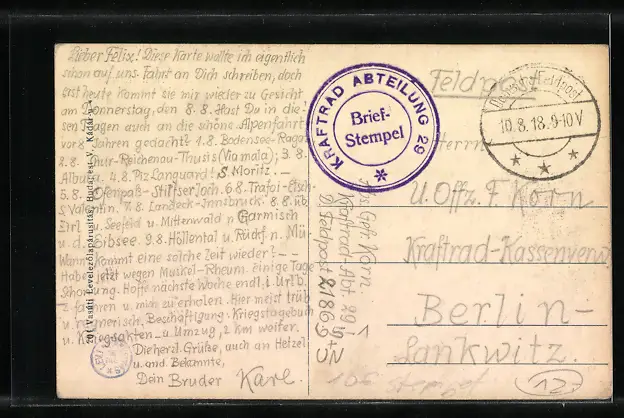 Lieber Felix! Diese Karte wollte ich eigentlich
schon auf uns. Fahrt an Dich schreiben, doch
erst heute kommt sie mir wieder zu Gesicht
am Donnerstag, den 8. 8. Hast Du in die-
sen Tagen auch an die schöne Alpenfahrt
vor 8 Jahren gedacht? 1.8. Bodensee-Ragaz
2.8. Thur-Reichenau-Thusis (Via mala); 3.8.
Albula u. 4.8. Piz Languard! S. Moritz. —
5.8. Ofenpaß-Stilfserjoch. 6.8. Trafoi-Etsch-
S. Valentin. 7.8. Landeck-Innsbruck. 8.8. üb.
Zirl u. Seefeld u. Mittenwald n. Garmisch
u. d. Eibsee. 9.8. Höllental u. Rückf. n. Mü.
Wann kommt eine solche Zeit wieder! — —
Habe jetzt wegen Muskel-Rheum. Einige Tage
Schonung. Hoffe nächste Woche endl. i. Urlb.
z. fahren u. mich zu erholen. Hier meist trüb
u. regnerisch. Beschäftigung: Kriegstagebuch
u. Kriegsakten- u. Umzug, 2 km weiter.
Die herzl. Grüße, auch an Hetzel
u. and. Bekannte,
Dein Bruder Karl.
Vasúti Levelezőlapárusítás, Budapest V., Kádár-u.
KRAFTRAD ABTEILUNG 29
Brief-
Stempel
Feldpost
10.8.18.9-10V
Herrn
U. Offz. F. Korn
Kraftrad-Kassenverw.
Berlin-
Lankwitz.
Korn
Kraftrad-Abt. 29